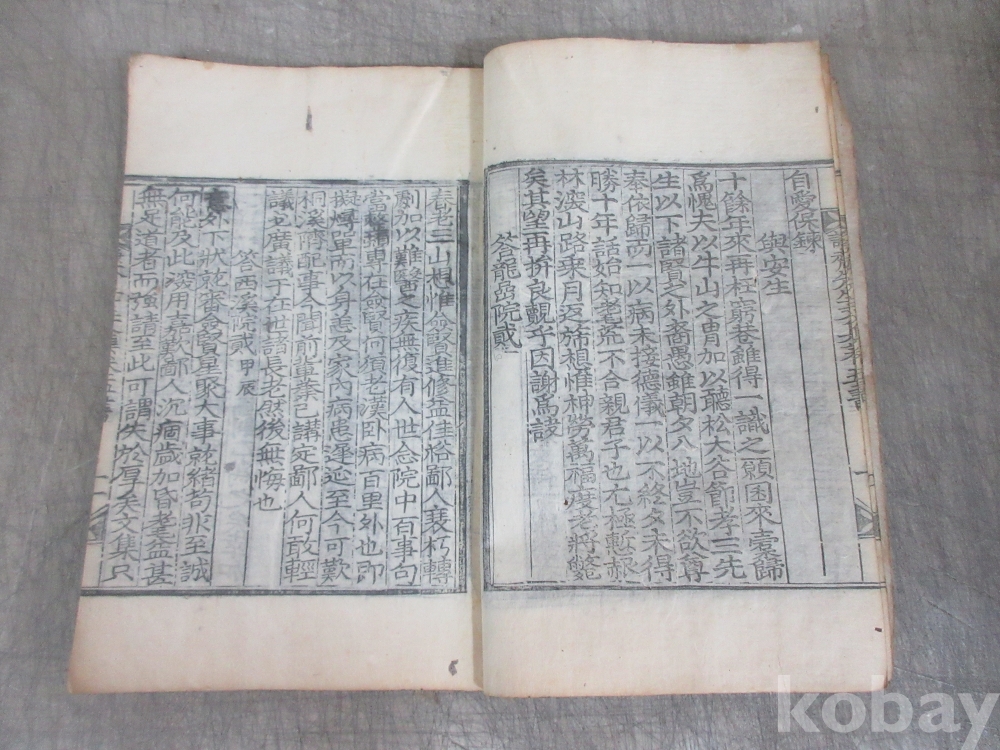 自警俟錄
與安生
十餘年來再枉窮巷雖得一識之願困來壹歸
爲愧夫以牛山之胄加以聽松大谷節孝三先
生以下諸賢之外裔愚雖朝夕八地豈不欲尊
奉依歸而一以病未接德儀一以不終夕未得
勝十年話始和老荒不合親君子也尤極慙郝
林深山路乘月返斾想惟神勞萬福度老將斃
矣其望再拚良覿乎因謝爲諼
答龍嵒院貳
三山想惟僉學進修益佳恪鄙人衰朽轉
劇加以難醫之疾無復有人世念院中有事句
當專在僉賢何須老漢臥病百里外也卽
擬專单而以身恙及家內病患遷延至今可歎
桐溪隮配事今聞前輩業已講定鄙人何敢輕
議必廣議于在世諸長老然後無悔也
答西溪院貳 甲辰
外下狀就審多賢星聚大事就緒苟非至誠
何能及此深用嘉歎鄙人沉痼歲加昏耄益甚
無足道者而強請至此可謂失於厚矣文集只
kobay